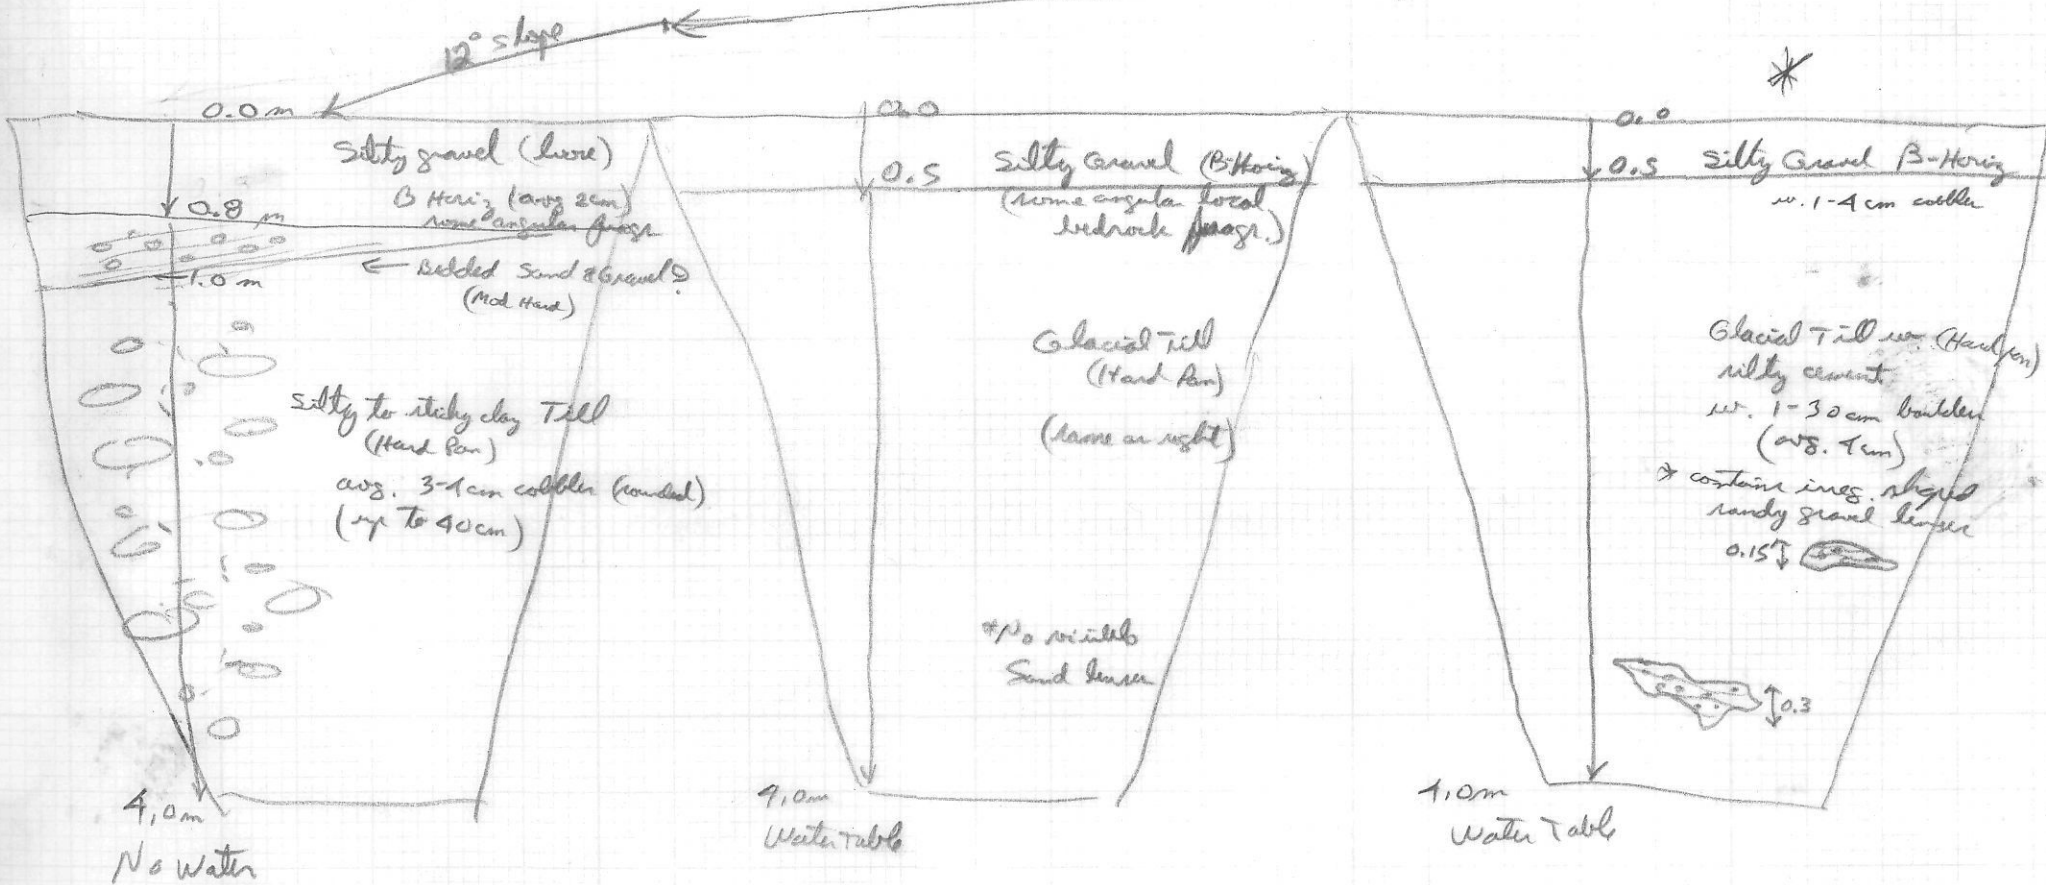 12° slope
0.0 m
Silty gravel (loose)
B Horiz (avg 2cm)
some angular frags
0.8 m
1.0 m
← Bedded Sand & Gravel?
(Mod Hard)
Silty to sticky clay Till
(Hard Pan)
avg. 3-4cm cobbles (rounded)
(up to 40cm)
4.0m
No Water
0.0
0.5
Silty Gravel (B-Horiz)
(some angular local
bedrock fragr.)
Glacial Till
(Hard Pan)
(same as right)
*No visible
Sand lenses
4.0m
Water Table
*
0.0
0.5
Silty Gravel B-Horiz
w. 1-4 cm cobbles
Glacial Till w. (Hard pan)
silty cement
w. 1-30cm boulders
(avg. 4cm)
* contains irreg. shaped
sandy gravel lenses
0.15
0.3
4.0m
Water Table